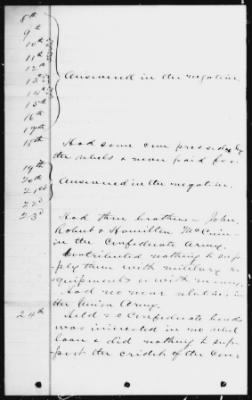 8th
9th
10th
11th
12th
13th Answered in the negative
14th
15th
16th
17th
18th Had some corn pressed by
the rebels & never paid for.
19th
20th Answered in the negative.
21st
22d
23d Had three brothers - John,
Robert & Hamilton McCain -
in the Confederate Army.
Contributed nothing to sup-
ply them with military e-
quipments or with money.
Had no near relatives in
the Union Army.
24th Held no Confederate bonds
was interested in no rebel
loan & did nothing to sup-
port the credit of the Con-